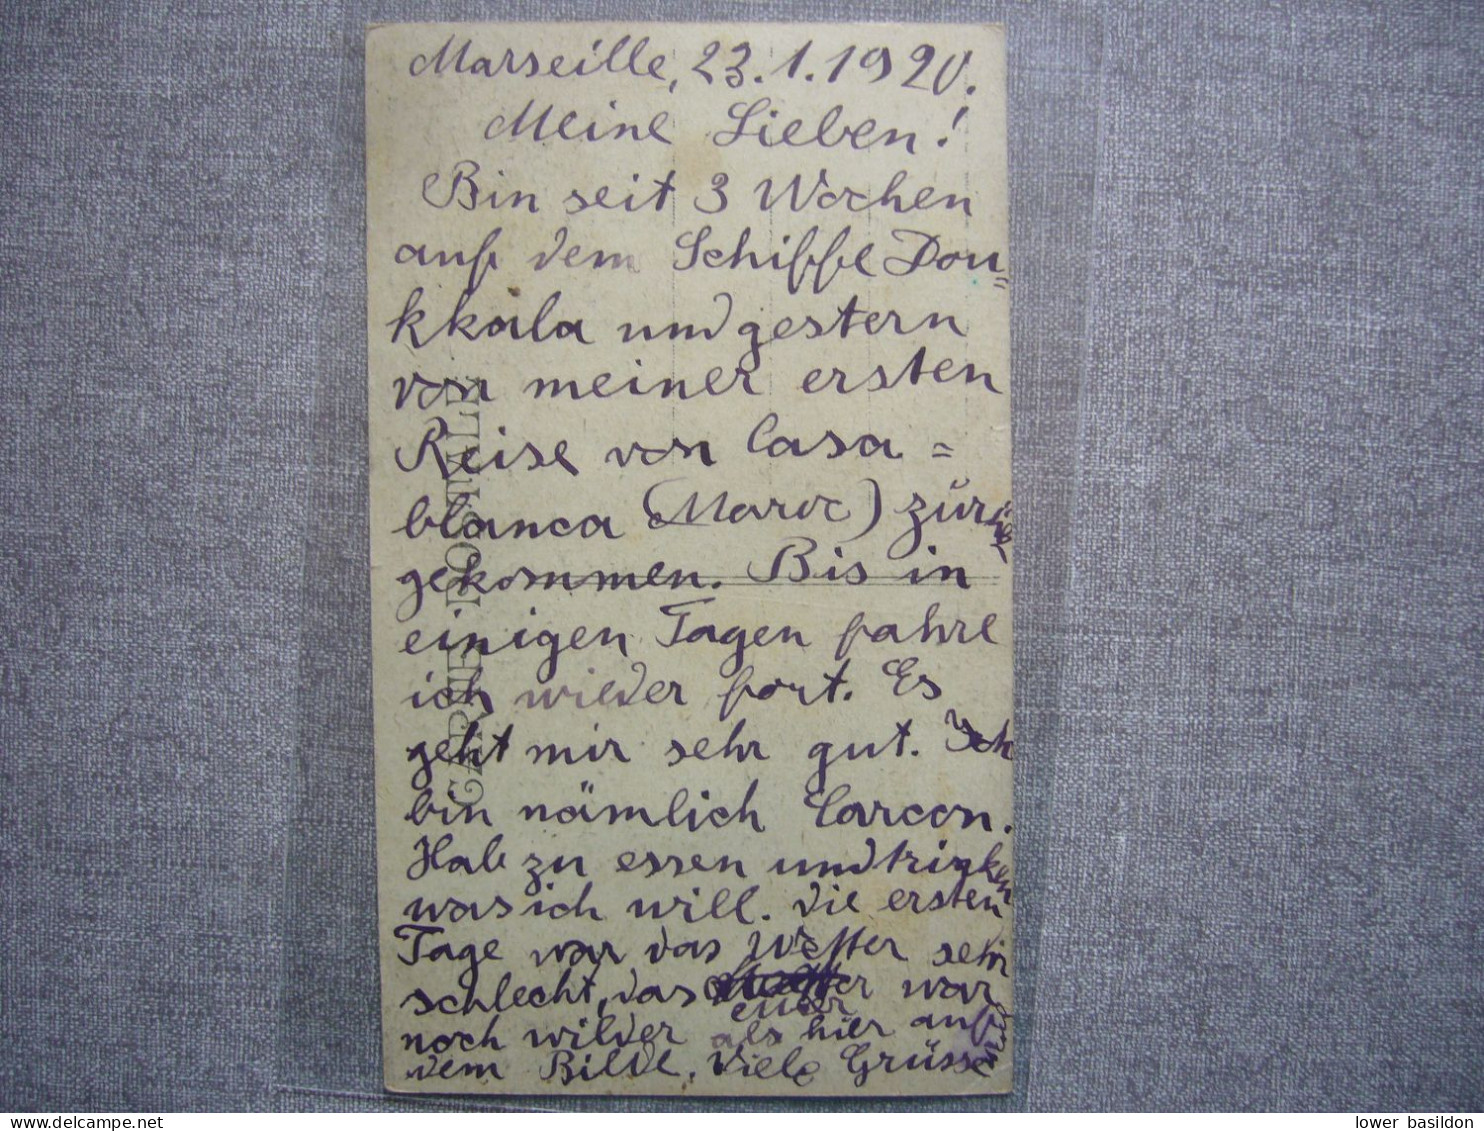 Marseille, 23.1.1920.
Meine Lieben!
Bin seit 3 Wochen
auf dem Schiffe Dou=
kkala und gestern
von meiner ersten
Reise von Casa=
blanca (Maroc) zurück
gekommen. Bis in
einigen Tagen fahre
ich wieder fort. Es
geht mir sehr gut. Ich
bin nämlich Carcon.
Hab zu essen und trinken
was ich will. Die ersten
Tage war das Wetter sehr
schlecht, das war
noch wilder als hier auf
dem Bilde. Viele Grüsse
euer
CARTE POSTALE
lower basildon